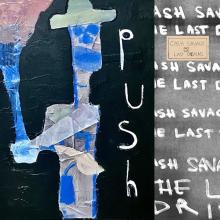 push
ASH SAVAG
HE LAST D
CASH SAVAGE
AND THE
LAST DRINKS
ISH SAVAG
E LAST D
ISH SAVAG
E LAST D
ISH SAV
THE L
DRI